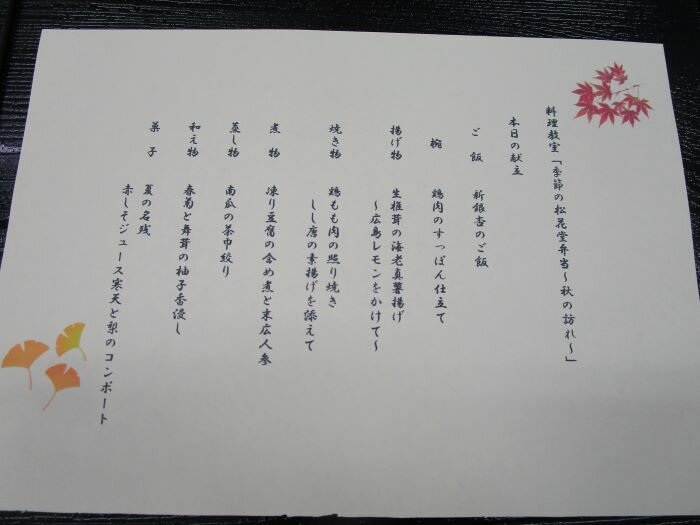 料理教室「季節の松花堂弁当～秋の訪れ～」
本日の献立
ご飯　新銀杏のご飯
椀　鶏肉のすっぽん仕立て
揚げ物　生椎茸の海老真薯揚げ
～広島レモンをかけて～
焼き物　鶏もも肉の照り焼き
しし唐の素揚げを添えて
煮物　凍り豆腐の含め煮と末広人参
蒸し物　南瓜の茶巾絞り
和え物　春菊と舞茸の柚子香浸し
菓子　夏の名残
赤しそジュース寒天と梨のコンポート